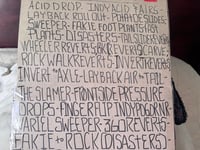 ACID DROP. INDY ACID AIRS-
LAY BACK ROLL OUT- SIDES-
SWEEPER- FAKIE FOOT PLANTS FAST
PLANTS- DISASTERS- TAIL
WHEELER REVERTS- CARVE
ROCK WALK REVERTS- INVERT REVERTS
INVERT- AXLE- LAY BACK AIR- TAIL-
THE SLAMER- FRONTSIDE PRESSURE
DROPS- FINGER FLIP INDY
ARIEL SWEEPER 360 REVERTS-
FAKIE TO ROCK DISASTERS-